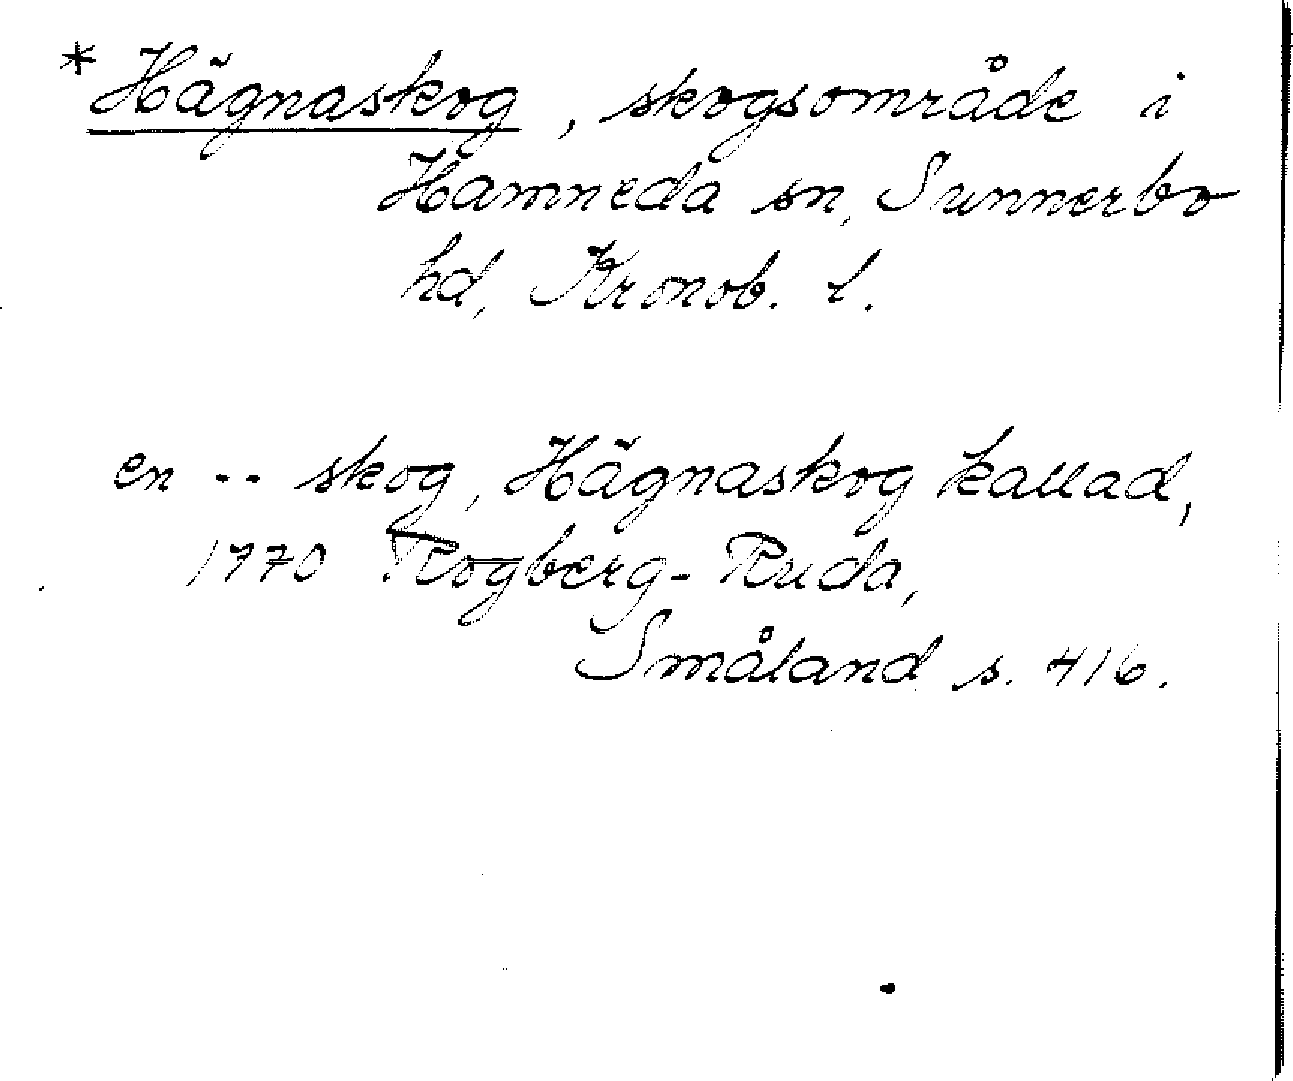 *Hägnaskog, skogsområde i
Hamneda sn, Sunnerbo
hd, Kronob. l.
en -- skog, Hägnaskog kallad,
1770 Rogberg-Ruda,
Småland s. 416.